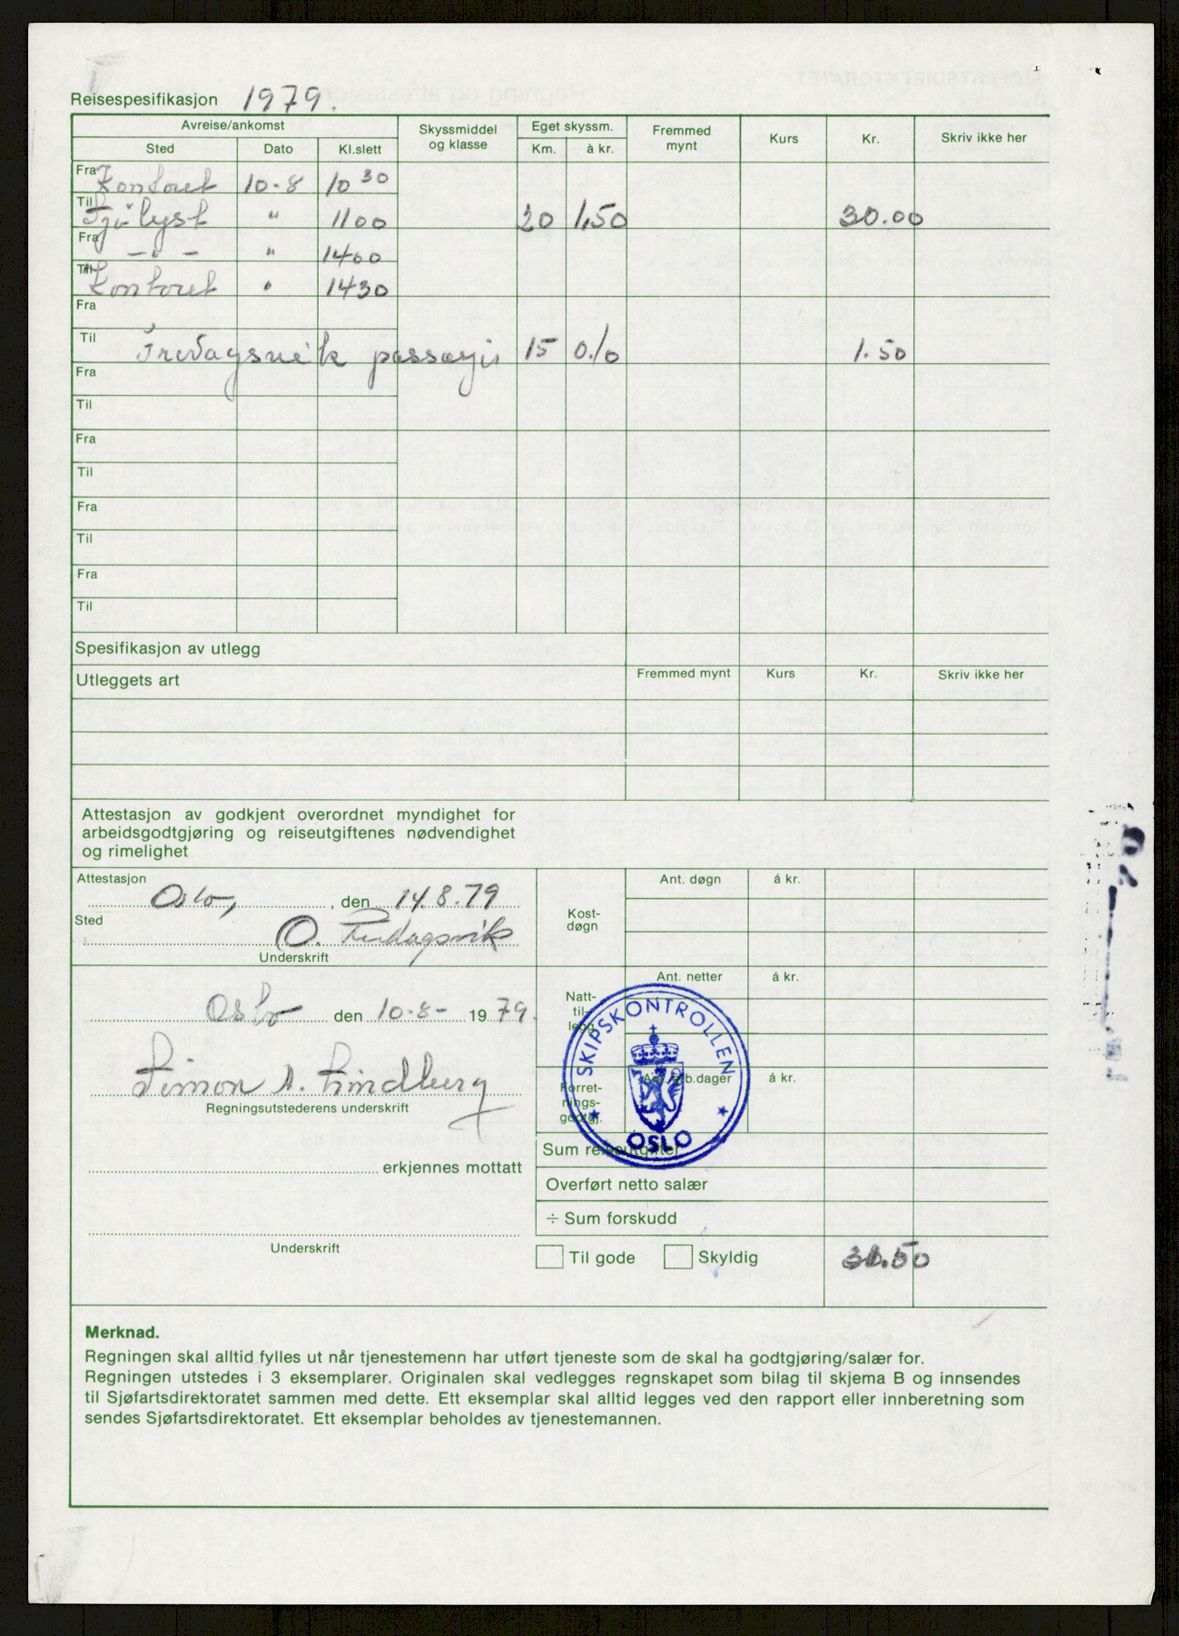 Reisespesifikasjon 1979.
Avreise/ankomst Skyssmiddel og klasse Eget skyssm. Fremmed mynt Kurs Kr. Skriv ikke her
Sted Dato Kl.slett Km. à kr.
Fra Kontoret 10-8 10 30
Til " 1100 20 1,50 30.00
Fra - " - " 1400
Til Kontoret " 1430
Fra
Til Fredagsvik passasjer 15 0.10 1.50
Fra
Til
Fra
Til
Fra
Til
Fra
Til
Spesifikasjon av utlegg
Utleggets art Fremmed mynt Kurs Kr. Skriv ikke her
Attestasjon av godkjent overordnet myndighet for
arbeidsgodtgjøring og reiseutgiftenes nødvendighet
og rimelighet
Attestasjon
Oslo, , den 14.8.79
Sted
O. Fredagsvik
Underskrift
Oslo den 10-8- 1979.
Simon A. Lindberg
Regningsutstederens underskrift
erkjennes mottatt
Underskrift
Kost-
døgn
Ant. døgn á kr.
Natt-
til-
legg
Ant. netter á kr.
Forret-
nings-
godtgj.
Ant. arb.dager á kr.
SKIPSKONTROLLEN
OSLO
Sum reiseutgifter
Overført netto salær
÷ Sum forskudd
Til gode Skyldig 31.50
Merknad.
Regningen skal alltid fylles ut når tjenestemenn har utført tjeneste som de skal ha godtgjøring/salær for.
Regningen utstedes i 3 eksemplarer. Originalen skal vedlegges regnskapet som bilag til skjema B og innsendes
til Sjøfartsdirektoratet sammen med dette. Ett eksemplar skal alltid legges ved den rapport eller innberetning som
sendes Sjøfartsdirektoratet. Ett eksemplar beholdes av tjenestemannen.